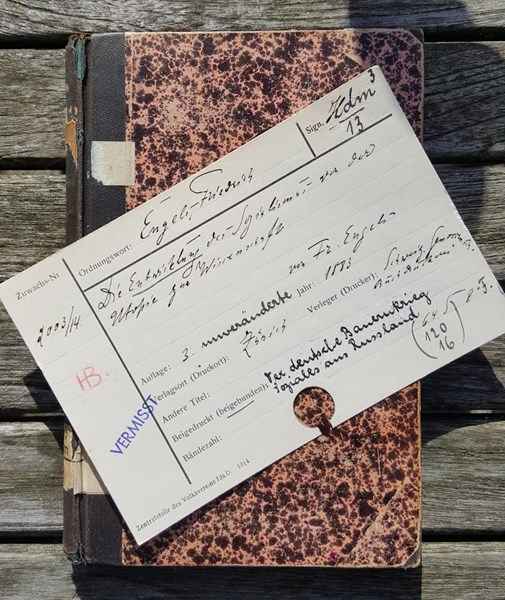 Sign. Hdm 3
13
Zuwachs-Nr
Ordnungswort: Engels Friedrich
2003/14
Die Entwicklung des Sozialismus von der
Utopie zur Wissenschaft
von Fr. Engels
HB.
Auflage: 3. unveränderte Jahr: 1883
Verlagsort (Druckort): Zürich Verleger (Drucker): Schweiz.
Andere Titel:
Beigedruckt (beigebunden): Der deutsche Bauernkrieg
Soziales aus Russland
(64 S. 8°.
120
16)
Bändezahl:
VERMISST
Zentralstelle des Volksvereins fdkD. 1914